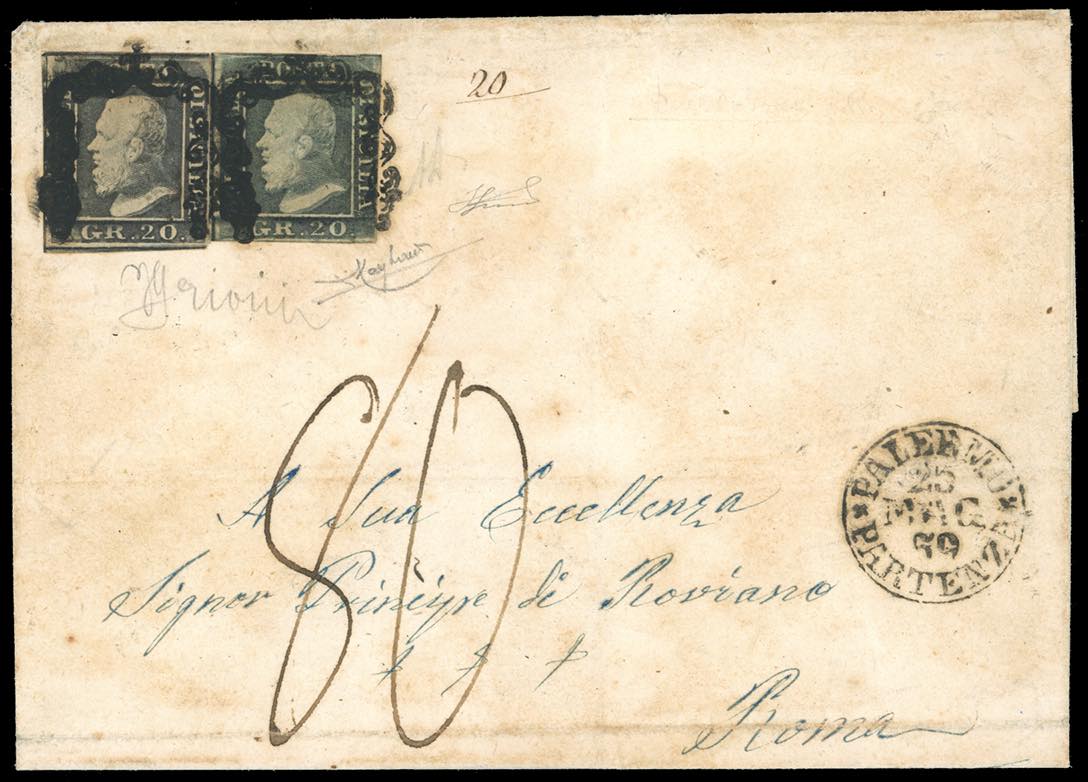 POSTA
DI SICILIA
GR. 20.
POSTA
DI SICILIA
GR. 20.
20
80
A Sua Eccellenza
Signor Principe di Roviano
Roma
PALERMO
25
MAG
59
PARTENZA